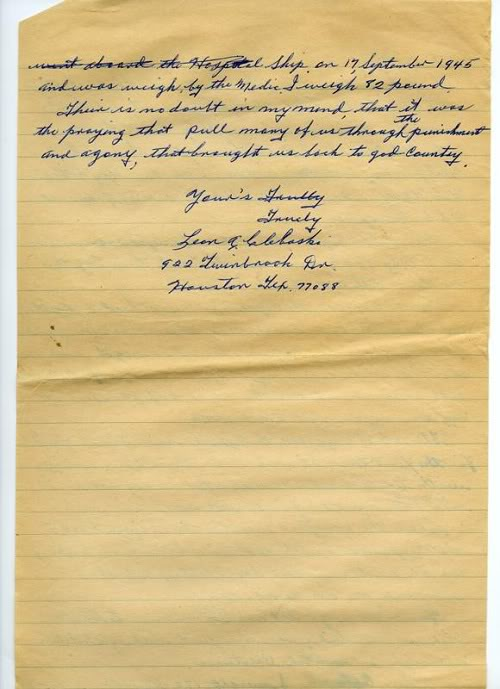 went aboard the Hospital Ship. on 17, September 1945
and was weigh, by the Medic I weigh 82 pound.
Their is no doubt in my mend, that it was
the praying that pull many of us through the punishment
and agony, that brought us back to god Country.
Your's Trulby
Truely
Leon A.
922 Twinbrook Dr.
Houston Tex. 77088